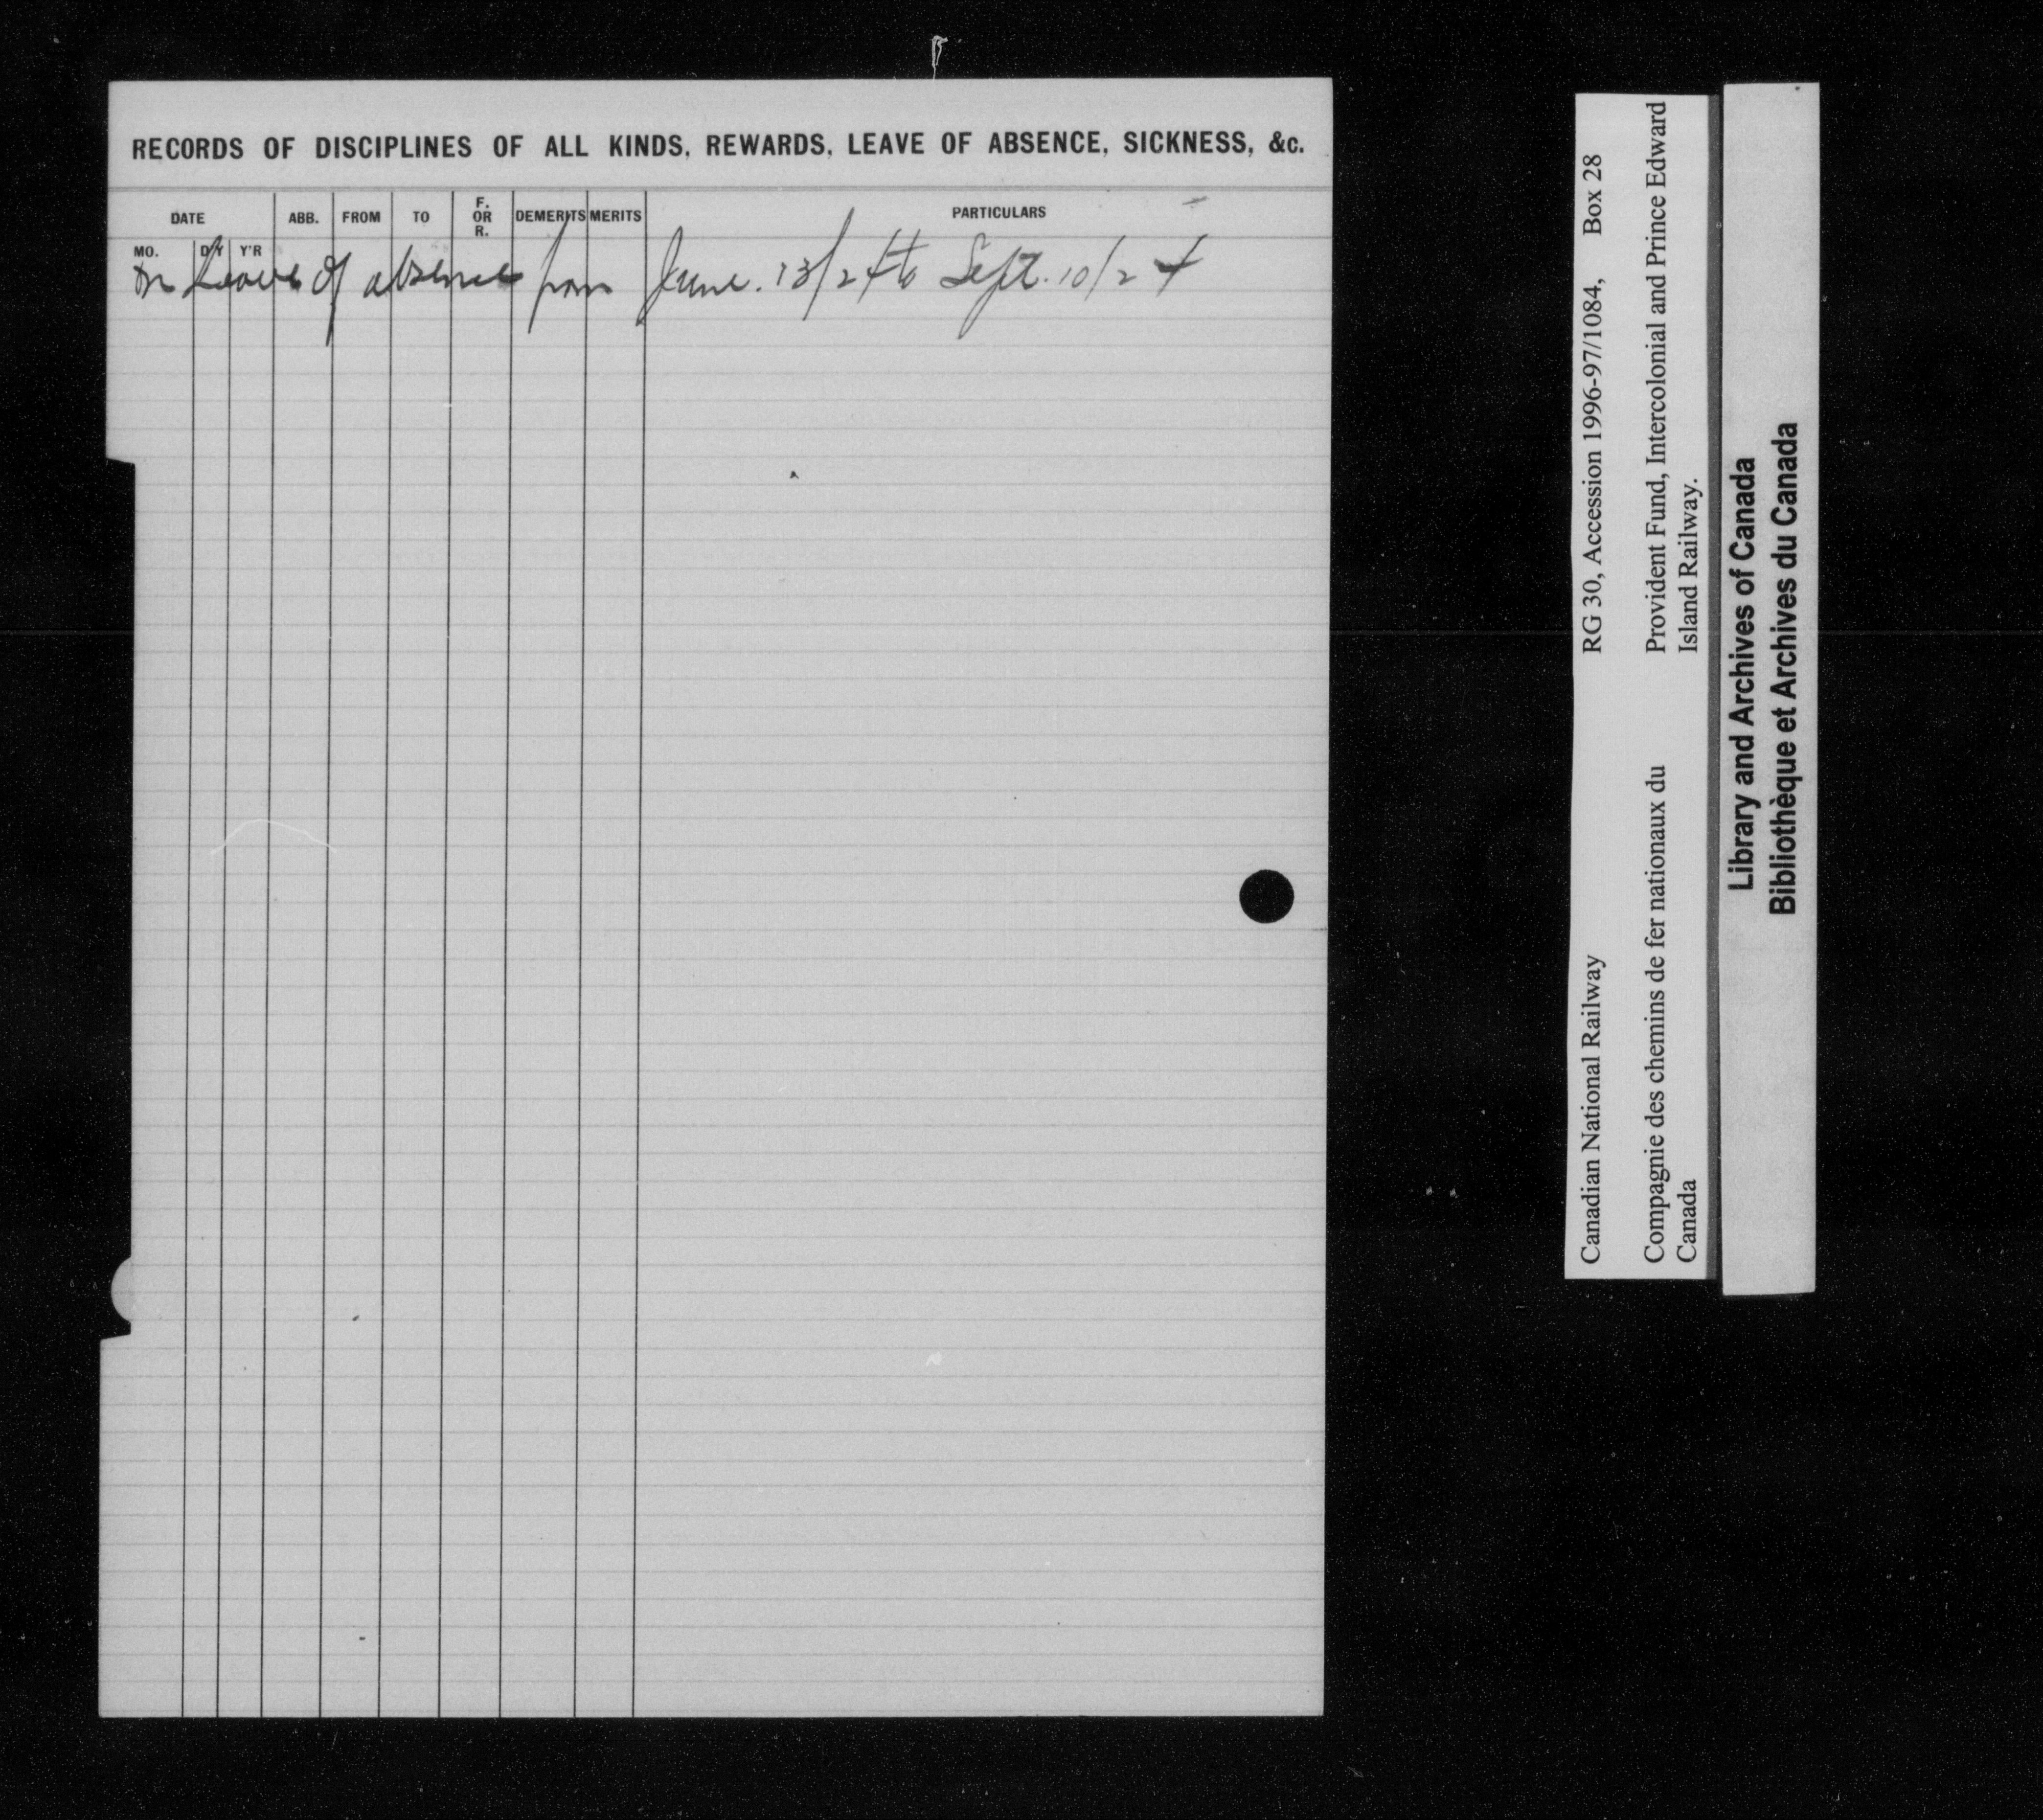 RECORDS OF DISCIPLINES OF ALL KINDS, REWARDS, LEAVE OF ABSENCE, SICKNESS, &c.
DATE ABB. FROM TO F. OR R. DEMERITS MERITS PARTICULARS
MO. D'Y Y'R
On Leave of absence from June. 13/24 to Sept. 10/24
Canadian National Railway RG 30, Accession 1996-97/1084, Box 28
Compagnie des chemins de fer nationaux du Provident Fund, Intercolonial and Prince Edward
Canada Island Railway.
Library and Archives of Canada
Bibliothèque et Archives du Canada